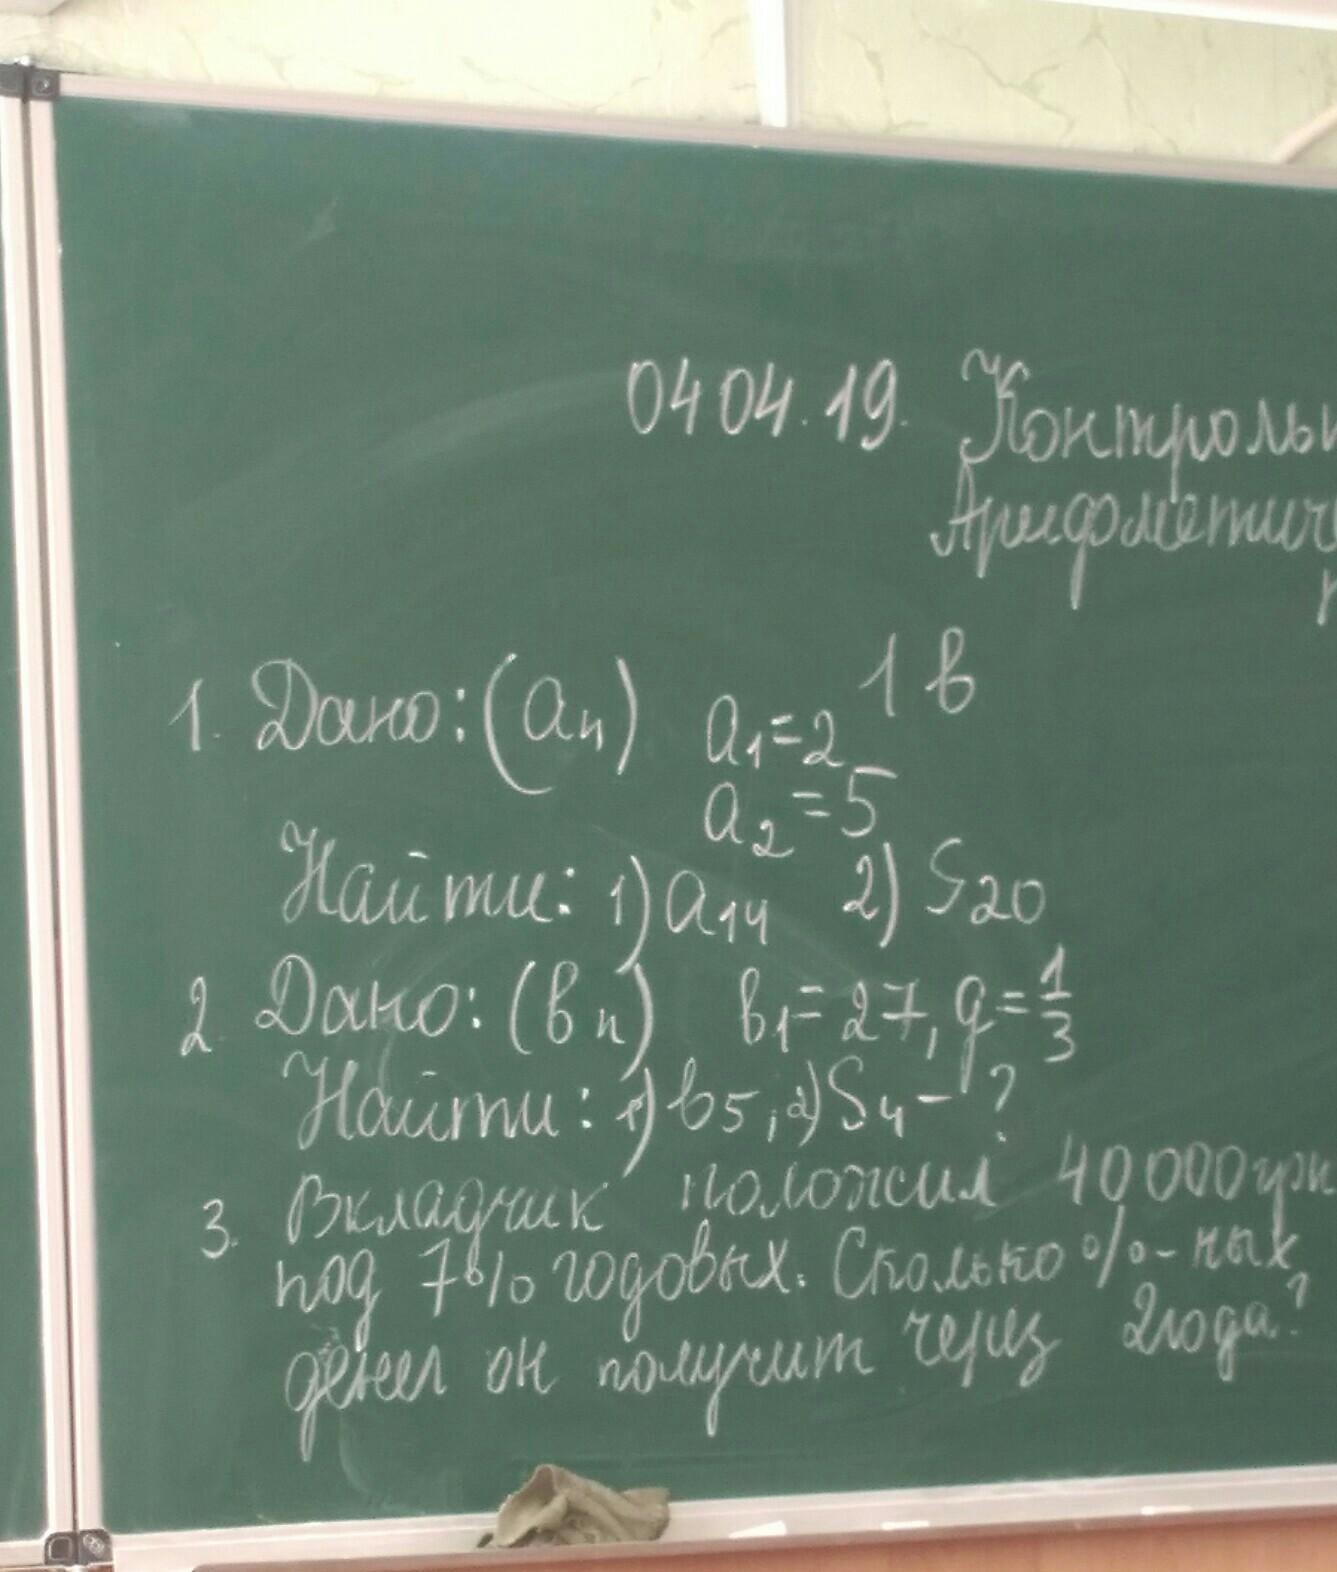 04 04.19. Контрольн
Арифметиче
1 в
1. Дано: (aₙ) a₁=2
a₂=5
Найти: 1) a₁₄ 2) S₂₀
2. Дано: (вₙ) в₁=27, q=1/3
Найти: 1) в₅, 2) S₄ - ?
3. Вкладчик положил 40 000 грн
под 7% годовых. Сколько %-ных
денег он получит через 2 года?